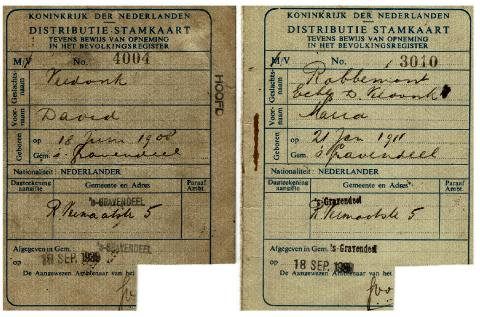 KONINKRIJK DER NEDERLANDEN
DISTRIBUTIE-STAMKAART
TEVENS BEWIJS VAN OPNEMING
IN HET BEVOLKINGSREGISTER
M/V No. 4004
Geslachtsnaam
HOOFD
Voornaam David
Geboren op 18 Juni 1908
Gem. 's Gravendeel
Nationaliteit: NEDERLANDER
Dagteekening aangifte Gemeente en Adres Paraaf Ambt.
's-GRAVENDEEL
5
Afgegeven in Gem. 's-GRAVENDEEL
op 18 SEP. 1939
De Aangewezen Ambtenaar van het
KONINKRIJK DER NEDERLANDEN
DISTRIBUTIE-STAMKAART
TEVENS BEWIJS VAN OPNEMING
IN HET BEVOLKINGSREGISTER
M/V No. 3010
Geslachtsnaam Robbemont
Voornaam Maria
Geboren op 21 Jan 1911
Gem. 's Gravendeel
Nationaliteit: NEDERLANDER
Dagteekening aangifte Gemeente en Adres Paraaf Ambt.
's-Gravendeel
5
Afgegeven in Gem. 's-Gravendeel
op 18 SEP. 1939
De Aangewezen Ambtenaar van het